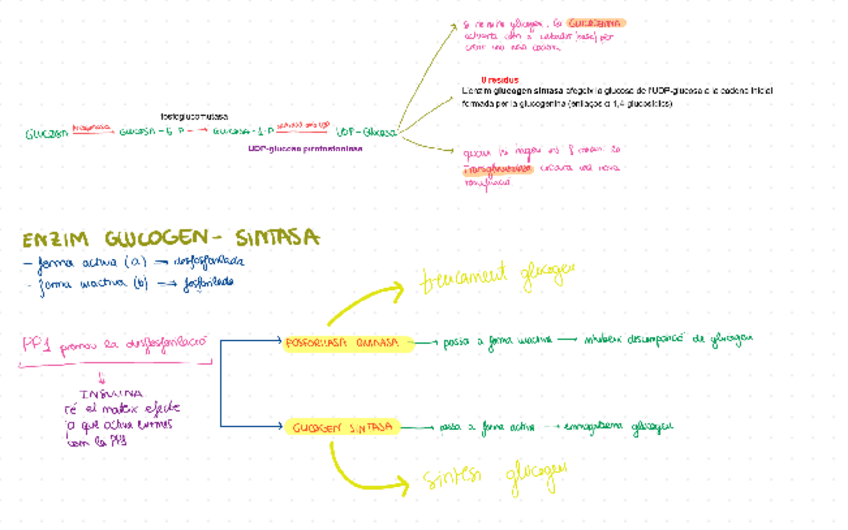 si no hi ha glucogen, la GLUCOGENINA
actuarà com a cebador (base) per
crear una nova cadena
8 residus
L'enzim glucogen sintasa afegeix la glucosa de l'UDP-glucosa a la cadena inicial
formada per la glucogenina (enllaços α 1,4-glucosídics)
fosfoglucomutasa
GLUCOSA → GLUCOSA-6-P → GLUCOSA-1-P → UDP-GLUCOSA
UDP-glucosa pirofosforilasa
quan hi hagin 8
crearà una nova
ramificació
ENZIM GLUCOGEN-SINTASA
- forma activa (a) → desfosforilada
- forma inactiva (b) → fosforilada
trencament glucogen
PP1 promou la desfosforilació
FOSFORILASA QUINASA → passa a forma inactiva → inhibeix descomposició de glucogen
INSULINA
té el mateix efecte
ja que activa enzims
com la PP1
GLUCOGEN SINTASA → passa a forma activa → emmagatzema glucogen
síntesi glucogen